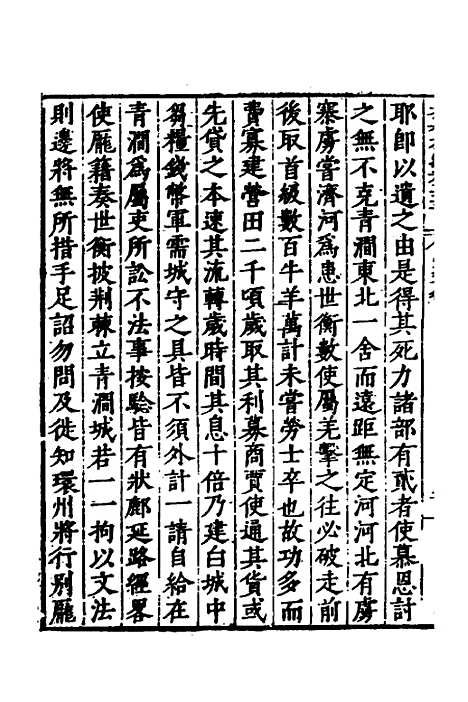 耶即以遺之由是得其死力諸部有貳者使慕恩討
之無不克青澗東北一舍而遠距無定河河北有虜
寨虜嘗濟河爲患世衡數使屬羌擊之往必破走前
後取首級數百牛羊萬計未嘗勞士卒也故功多而
費寡建營田二千頃歲取其利募商賈使通其貨或
先貸之本速其流轉歲時間其息十倍乃建白城中
芻糧錢幣軍需城守之具皆不須外計一請自給在
青澗爲屬吏所訟不法事按驗皆有狀鄜延路經畧
使龐籍奏世衡披荆棘立青澗城若一一拘以文法
則邊將無所措手足詔勿問及徙知環州將行别龐